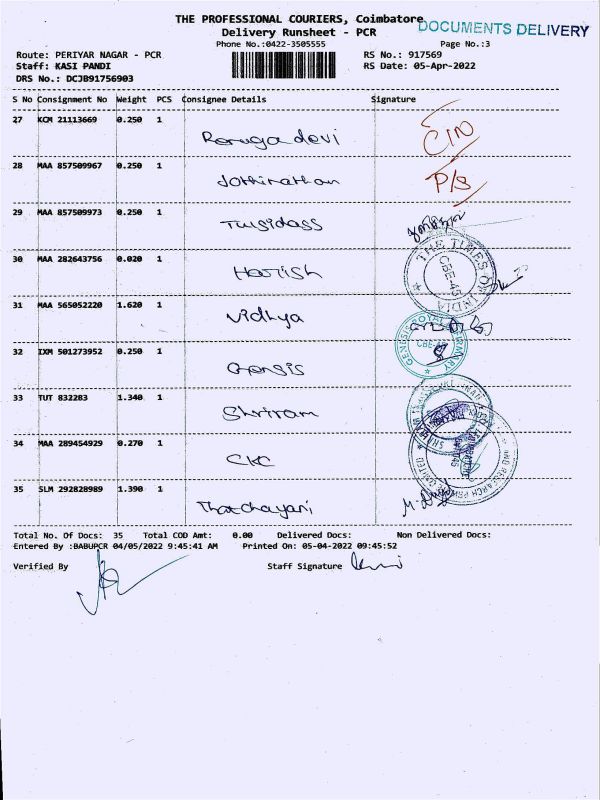 THE PROFESSIONAL COURIERS, Coimbatore
DOCUMENTS DELIVERY
Delivery Runsheet - PCR
Phone No.:0422-3505555 Page No.:3
Route: PERIYAR NAGAR - PCR RS No.: 917569
Staff: KASI PANDI RS Date: 05-Apr-2022
DRS No.: DCJB91756903
S No Consignment No Weight PCS Consignee Details Signature
27 KCM 21113669 0.250 1
Renuga devi
28 MAA 857509967 0.250 1
Jothinathan P/S
29 MAA 857509973 0.250 1
Tulsidass
30 MAA 282643756 0.020 1
Harish THE TIMES OF INDIA CBE-45
31 MAA 565052220 1.620 1
Vidhya
32 IXM 501273952 0.250 1
Gensis GENESIS ROYAL CBE-45
33 TUT 832283 1.340 1
Shriram
34 MAA 289454929 0.270 1
CKC
35 SLM 292828989 1.390 1
Thatchayani
Total No. Of Docs: 35 Total COD Amt: 0.00 Delivered Docs: Non Delivered Docs:
Entered By :BABUPCR 04/05/2022 9:45:41 AM Printed On: 05-04-2022 09:45:52
Verified By Staff Signature